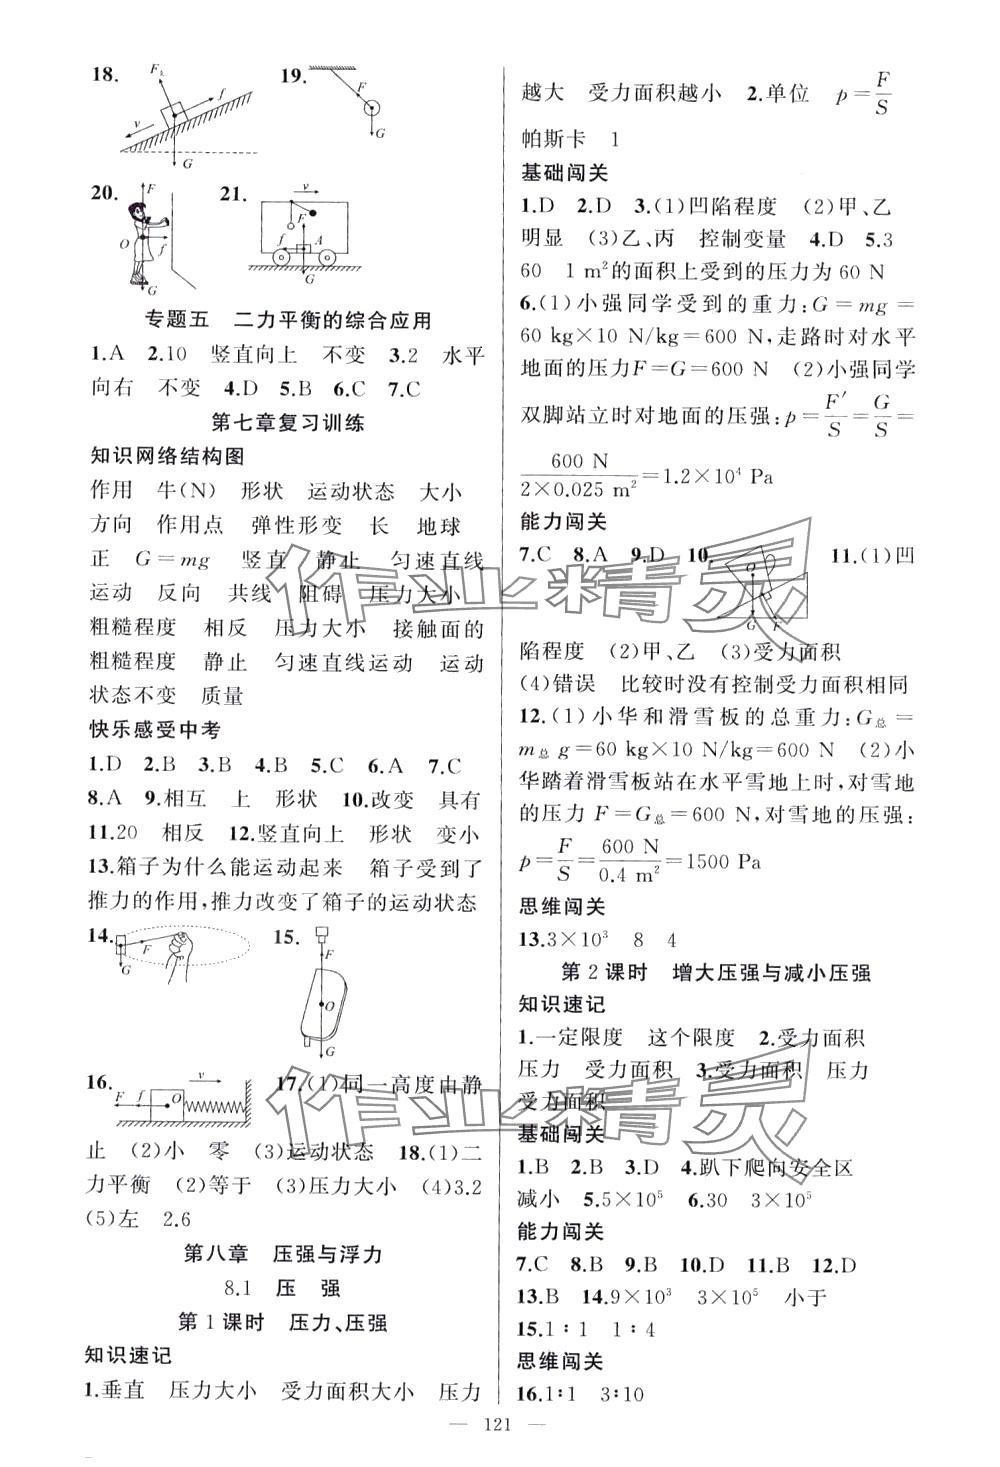 18. F支 f v G 19. F G
20. F O f G 21. v F f A G
专题五 二力平衡的综合应用
1.A 2.10 竖直向上 不变 3.2 水平
向右 不变 4.D 5.B 6.C 7.C
第七章复习训练
知识网络结构图
作用 牛(N) 形状 运动状态 大小
方向 作用点 弹性形变 长 地球
正 G=mg 竖直 静止 匀速直线
运动 反向 共线 阻碍 压力大小
粗糙程度 相反 压力大小 接触面的
粗糙程度 静止 匀速直线运动 运动
状态不变 质量
快乐感受中考
1.D 2.B 3.B 4.B 5.C 6.A 7.C
8.A 9.相互 上 形状 10.改变 具有
11.20 相反 12.竖直向上 形状 变小
13.箱子为什么能运动起来 箱子受到了
推力的作用,推力改变了箱子的运动状态
14. F G 15. F O G
16. F f O v 17.(1)同一高度由静
止 (2)小 零 (3)运动状态 18.(1)二
力平衡 (2)等于 (3)压力大小 (4)3.2
(5)左 2.6
第八章 压强与浮力
8.1 压 强
第1课时 压力、压强
知识速记
1.垂直 压力大小 受力面积大小 压力
越大 受力面积越小 2.单位 p=F/S
帕斯卡 1
基础闯关
1.D 2.D 3.(1)凹陷程度 (2)甲、乙
明显 (3)乙、丙 控制变量 4.D 5.3
60 1 m²的面积上受到的压力为 60 N
6.(1)小强同学受到的重力:G=mg=
60 kg×10 N/kg=600 N,走路时对水平
地面的压力F=G=600 N (2)小强同学
双脚站立时对地面的压强:p=F′/S=G/S=
600 N/(2×0.025 m²)=1.2×10⁴ Pa
能力闯关
7.C 8.A 9.D 10. O G F 11.(1)凹
陷程度 (2)甲、乙 (3)受力面积
(4)错误 比较时没有控制受力面积相同
12.(1)小华和滑雪板的总重力:G总=
m总 g=60 kg×10 N/kg=600 N (2)小
华踏着滑雪板站在水平雪地上时,对雪地
的压力 F=G总=600 N,对雪地的压强:
p=F/S=600 N/0.4 m²=1500 Pa
思维闯关
13.3×10³ 8 4
第2课时 增大压强与减小压强
知识速记
1.一定限度 这个限度 2.受力面积
压力 受力面积 3.受力面积 压力
受力面积
基础闯关
1.B 2.B 3.D 4.趴下爬向安全区
减小 5.5×10⁵ 6.30 3×10⁵
能力闯关
7.C 8.B 9.B 10.D 11.B 12.D
13.B 14.9×10³ 3×10⁵ 小于
15.1∶1 1∶4
思维闯关
16.1∶1 3∶10
— 121 —
作业精灵
作业精灵